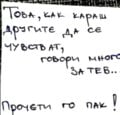 Това, как караш
другите да се
чувстват,
говори много
за теб..
Прочети го пак!